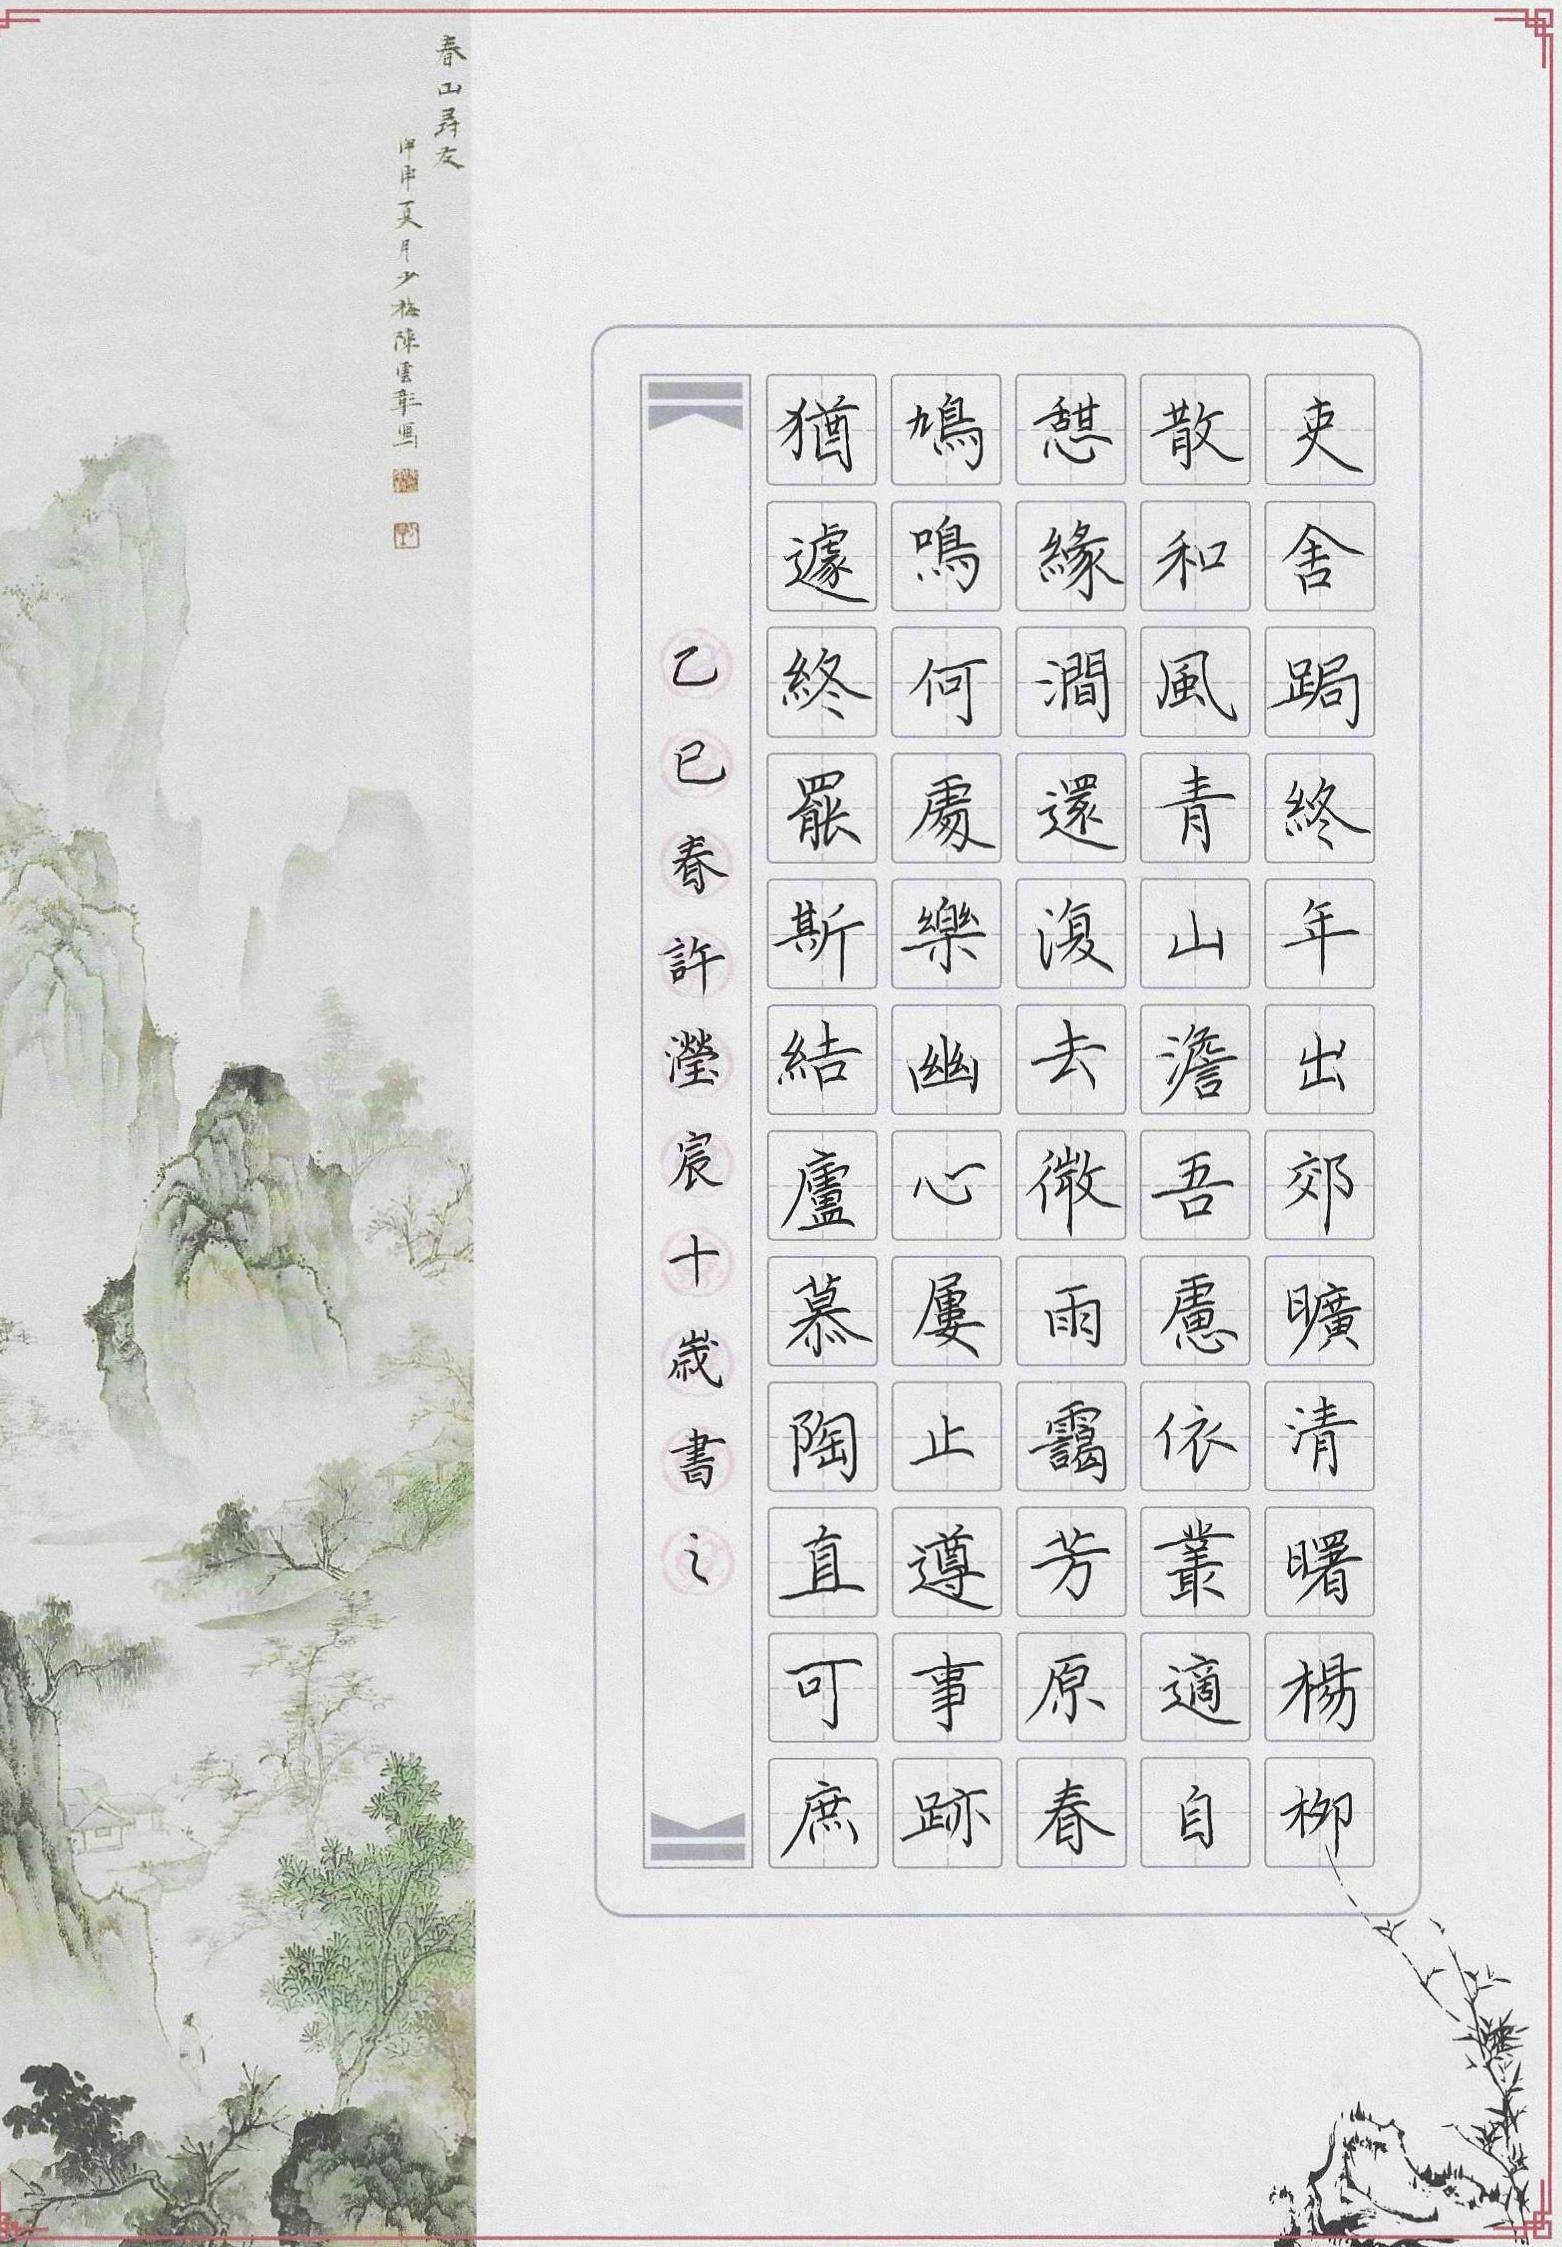 吏舍跼終年出郊曠清曙楊柳
散和風青山澹吾慮依叢適自
憇緣澗還復去微雨靄芳原春
鳩鳴何處樂幽心屢止遵事跡
猶遽終罷斯結廬慕陶直可庶
乙巳春許瀅宸十歲書之
春山尋友
甲申夏月少梅陳雲彰寫